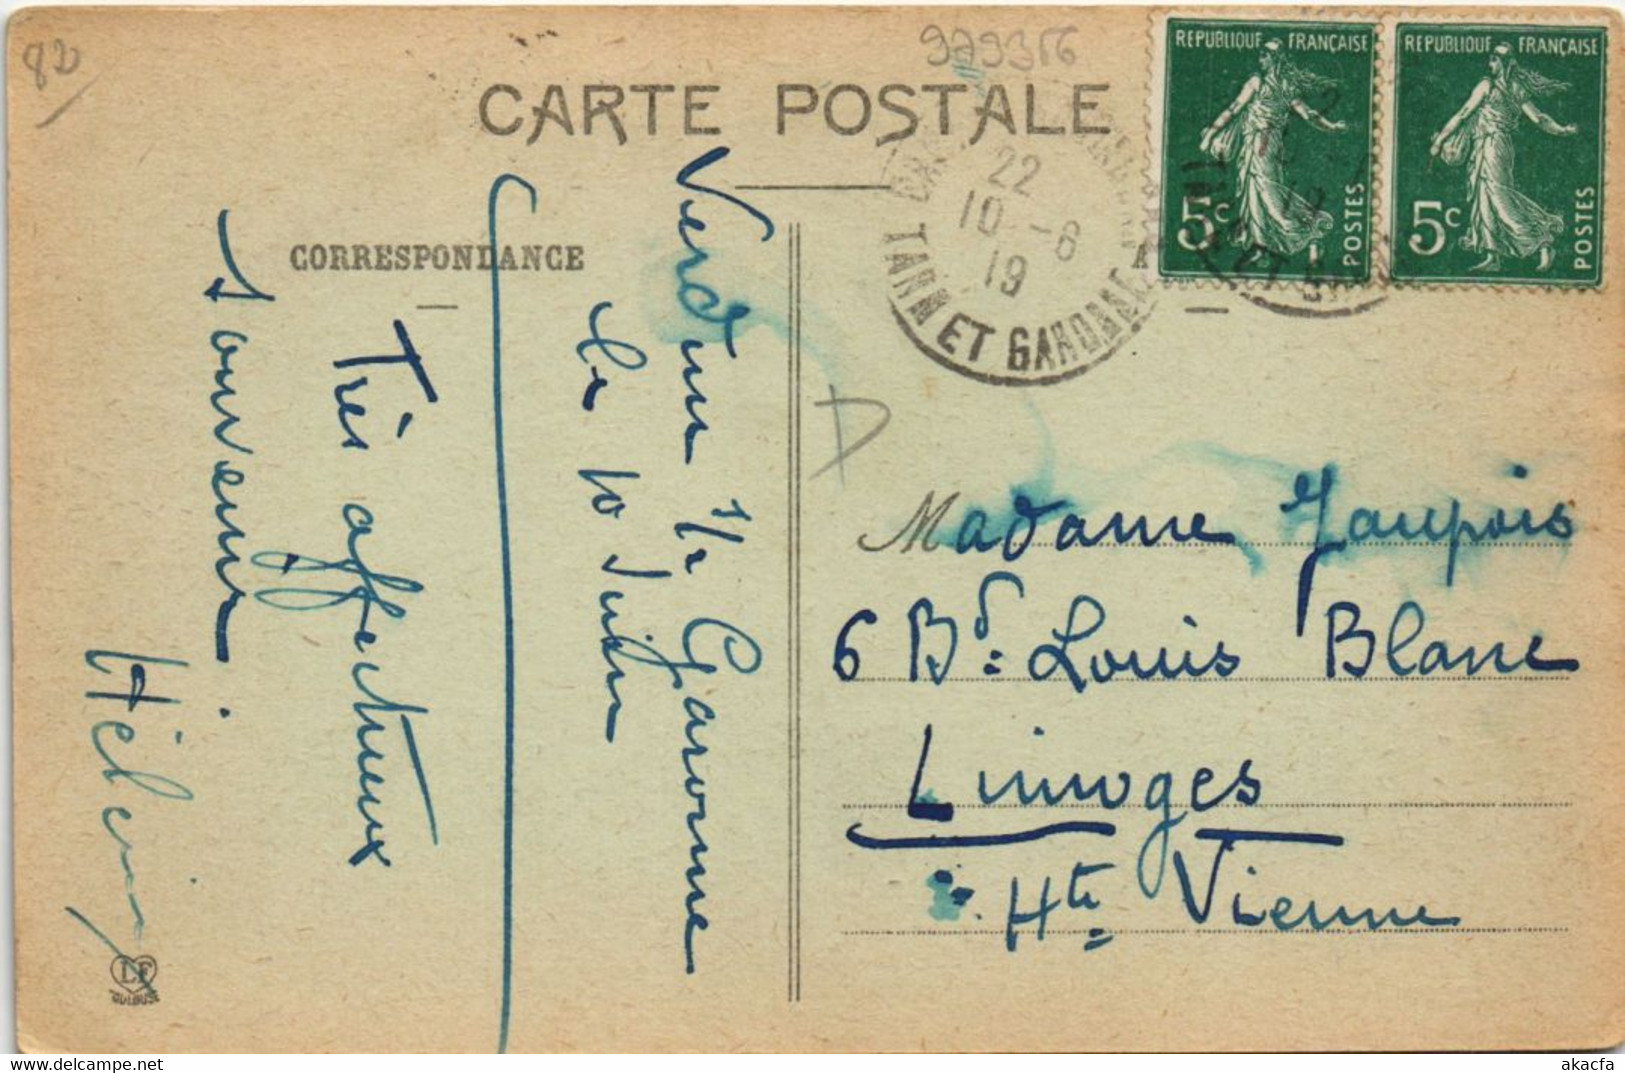 82
979356
CARTE POSTALE
CORRESPONDANCE
REPUBLIQUE FRANÇAISE
5c
POSTES
REPUBLIQUE FRANÇAISE
5c
POSTES
22
10 -6
19
TARN ET GARONNE
Verdun s/ Garonne
le 10 Juin
Très affectueux
souvenir.
Hélène
D
Madame Jaupois
6 Bd. Louis Blanc
Limoges
Hte Vienne
LF
TOULOUSE
akacfa